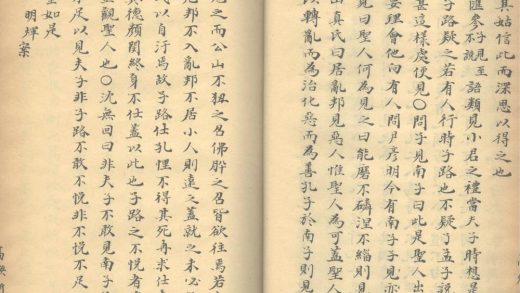 其姑信此而深思以得之也
匯參子見至不說 語類見小君之禮當夫子時想是
子路疑之若有人行時子路也不疑了孟子說
甚這樣處便見〇問子見南子曰此是聖人出
要理會他向有人問尹彥明今有南子子見亦
見曰聖人何為見之曰能磨不磷涅不緇則見
出真氏曰居亂邦見惡人惟聖人為可蓋聖人
以轉亂而為治化惡而為善孔子於南子則見
見之而公山不狃之召佛肸之召皆欲往焉若
危邦不入亂邦不居小人則遠之蓋就之未必
以自汙焉故子路仕孔悝不得其死冉求仕
其德顏閔終身不仕蓋以此也子路之不悅者
觀聖人也〇沈無回曰非夫子不敢見南子
不足以見夫子非子路不敢不悅非不悅不足
聖如是
明輝案